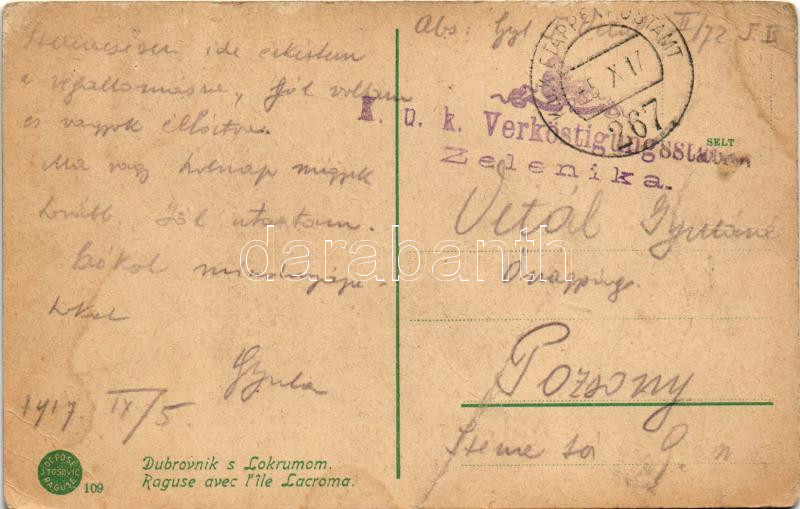 Szerencsésen ide érkeztem
a végállomásra, jól voltam
és vagyok ellátva.
Ma vagy holnap megyek
tovább. Jól utaztam.
Csókol mindnyájo-
tokat
Gyula
1917 IX/5.
Abs: II/72
K.u.K. ETAPPENPOSTAMT
5. X. 17
267.
K. u. k. Verköstigungsstation
Zelenika.
SELT
Vitál Gyuláné
Őnagysága
Pozsony
darabanth.com
DEPOSÉ
J. TOSOVIC
RAGUSE
109
Dubrovnik s Lokrumom.
Raguse avec l'île Lacroma.